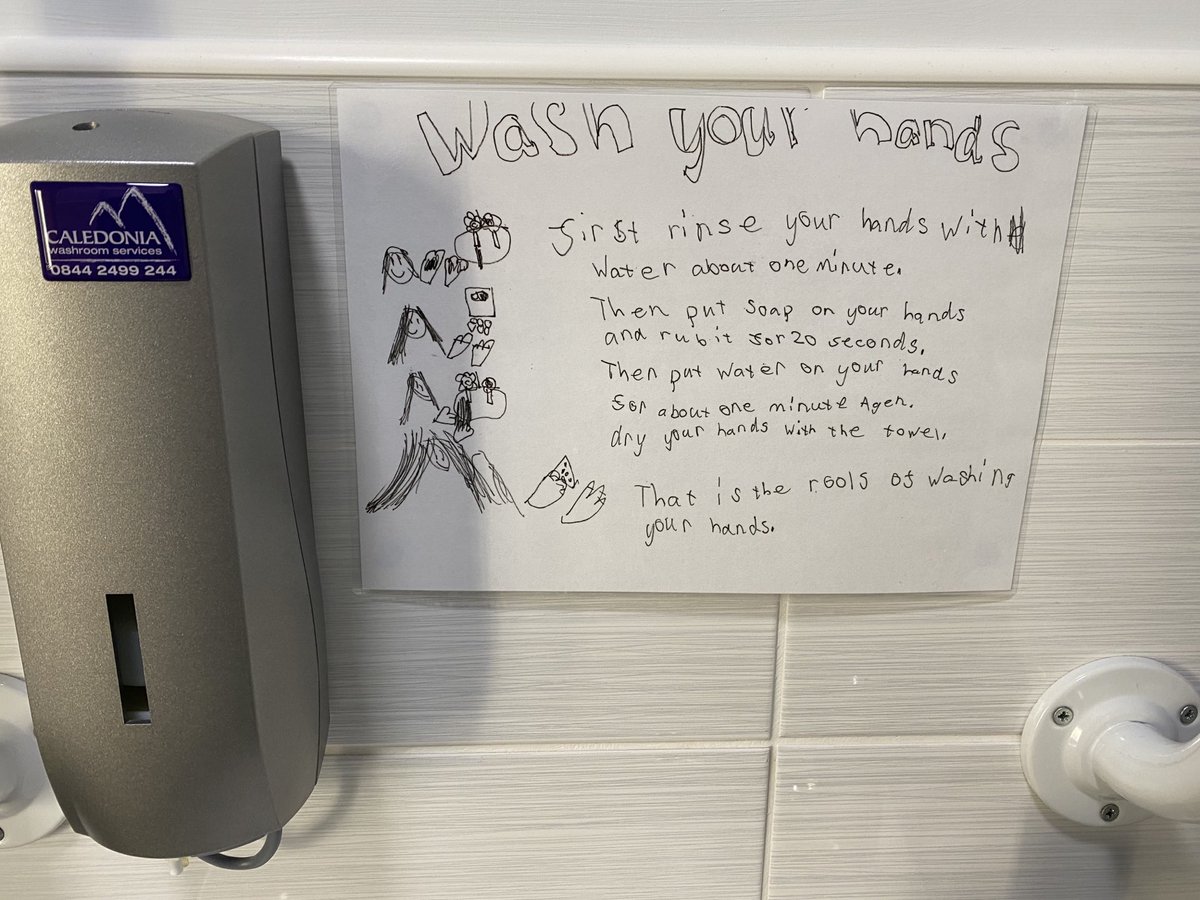 Wash your hands
CALEDONIA
washroom services
0844 2499 244
first rinse your hands with
water about one minute.
Then put soap on your hands
and rub it for 20 seconds.
Then put water on your hands
for about one minute Agen.
dry your hands with the towel.
That is the rools of washing
your hands.